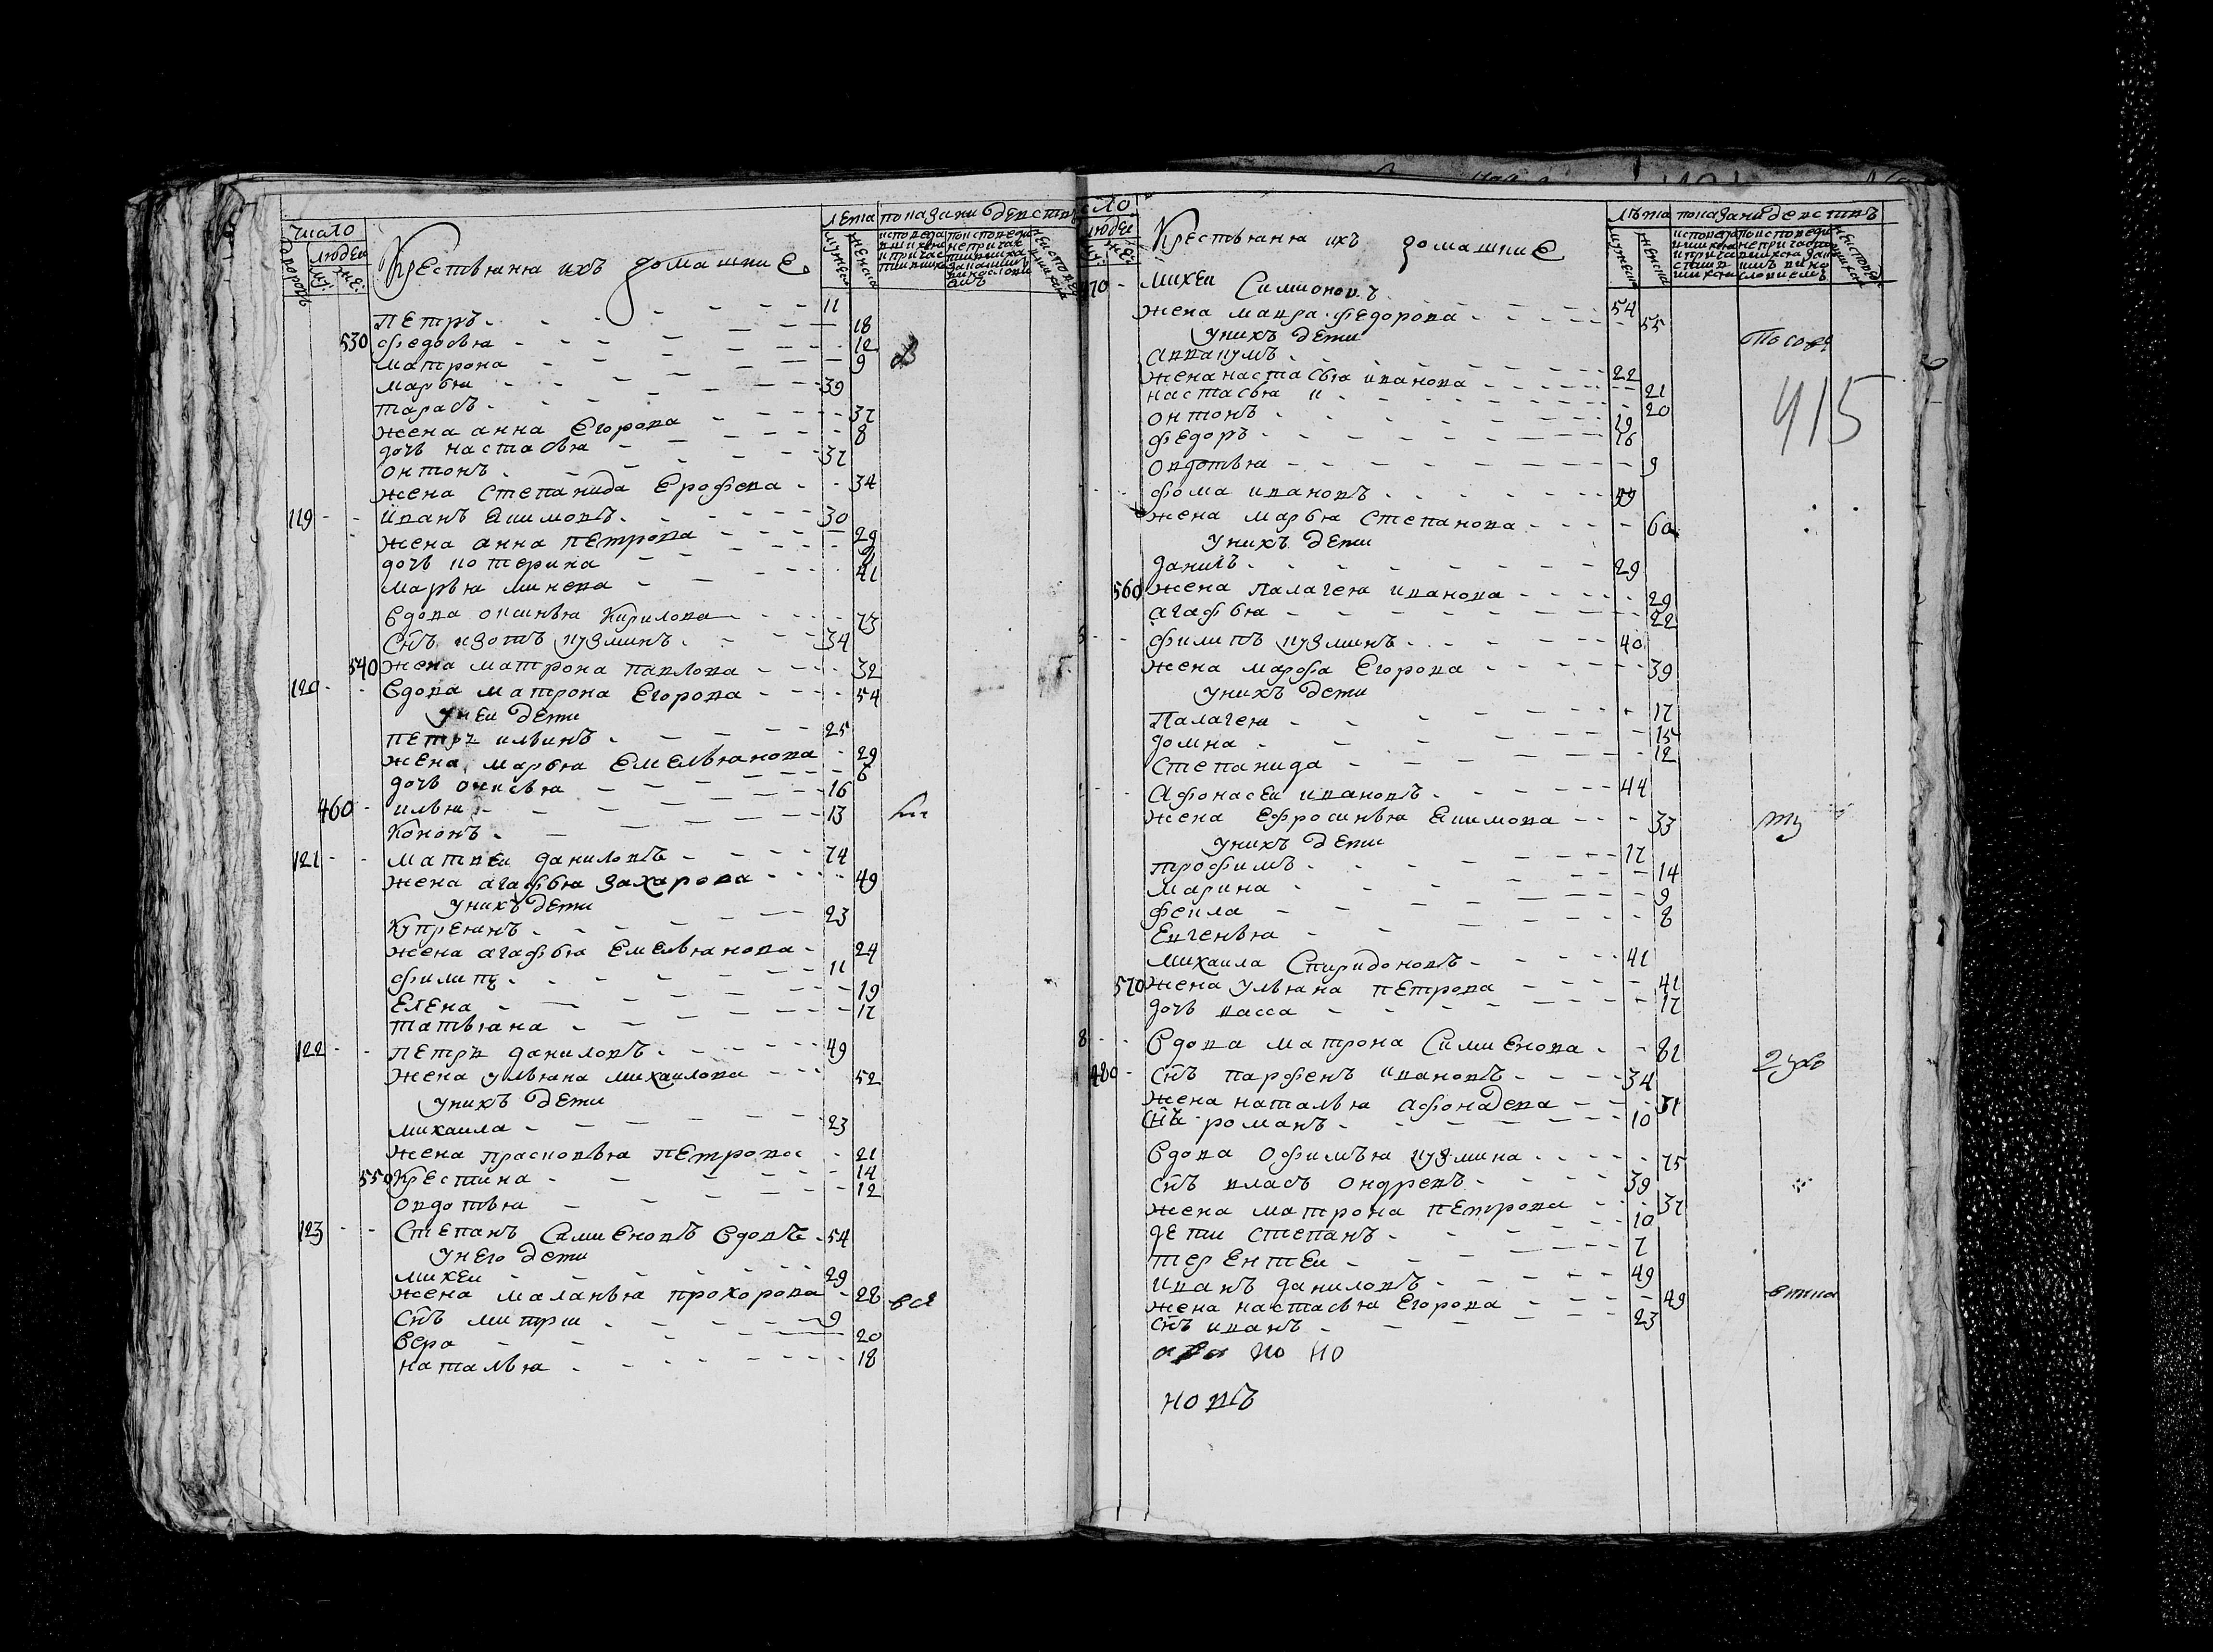 число
людеи
дворовъ
му:
же:
Крестьяня ихъ домашние
лета
мужеска
женска
показани действъ
Петръ 11
530 Федосья 18
Матрона 12
Марья 9
Тарасъ 39
жена анна Егорова 37
дочь настасья 8
онтонъ 37
жена Степанида Ерофева 34
119 иванъ Екимовъ 30
жена анна Петрова 29
дочь катерина
марья минева 41
Вдова оксинья Кирилова 73
Снъ изотъ кузминъ 34
540 жена матрона Павлова 32
120 Вдова матрона Егорова 54
у неи дети
петръ ильинъ 25
жена марья Емельянова 29
дочь окисья 6
460 илья 16
Кононъ 13
121 матвеи даниловъ 74
жена агафья Захарова 49
у нихъ дети
Купреянъ 23
жена агафья Емельянова 24
филипъ 11
Елена 19
татьяна 17
122 петръ даниловъ 49
жена ульяна михаилова 52
у нихъ дети
михаила 23
жена прасковья петрова 21
550 Крестина 14
овдотья 12
123 Степанъ Симионовъ Вдовъ 54
у него дети
михеи 29
жена маланья прохорова 28
Снъ митри 9
Вера 20
наталья 18
ло
людеи
му:
же:
Крестьяня ихъ домашние
лѣта
мужеска
женска
показани действъ
470 михеи Симионовъ 54
жена мавра федорова 55
у нихъ дети
аввакумъ 22
жена настасья иванова 21
настасья 20
онтонъ 19
федоръ 16
овдотья 9
415
фома ивановъ 49
жена марья Степанова 60
у нихъ дети
данилъ 29
560 жена Палагея иванова 29
агафья 22
филипъ кузминъ 40
жена марфа Егорова 39
у нихъ дети
Палагея 17
домна 15
Степанида 12
Афонасеи ивановъ 44
жена Ефросинья Екимова 33
у нихъ дети
трофимъ 17
марина 14
фекла 9
Евгенья 8
михаила Спиридоновъ 41
570 жена ульяна петрова 41
дочь васса 17
8 Вдова матрона Симионова 81
480 Снъ парфенъ ивановъ 34
жена наталья афонасева 31
Снъ романъ 10
Вдова офимья кузмина 75
Снъ власъ ондревъ 39
жена матрона петрова 37
дети степанъ 10
терентеи 7
иванъ даниловъ 49
жена настасья Егорова 49
Снъ иванъ 23
ко но
новъ